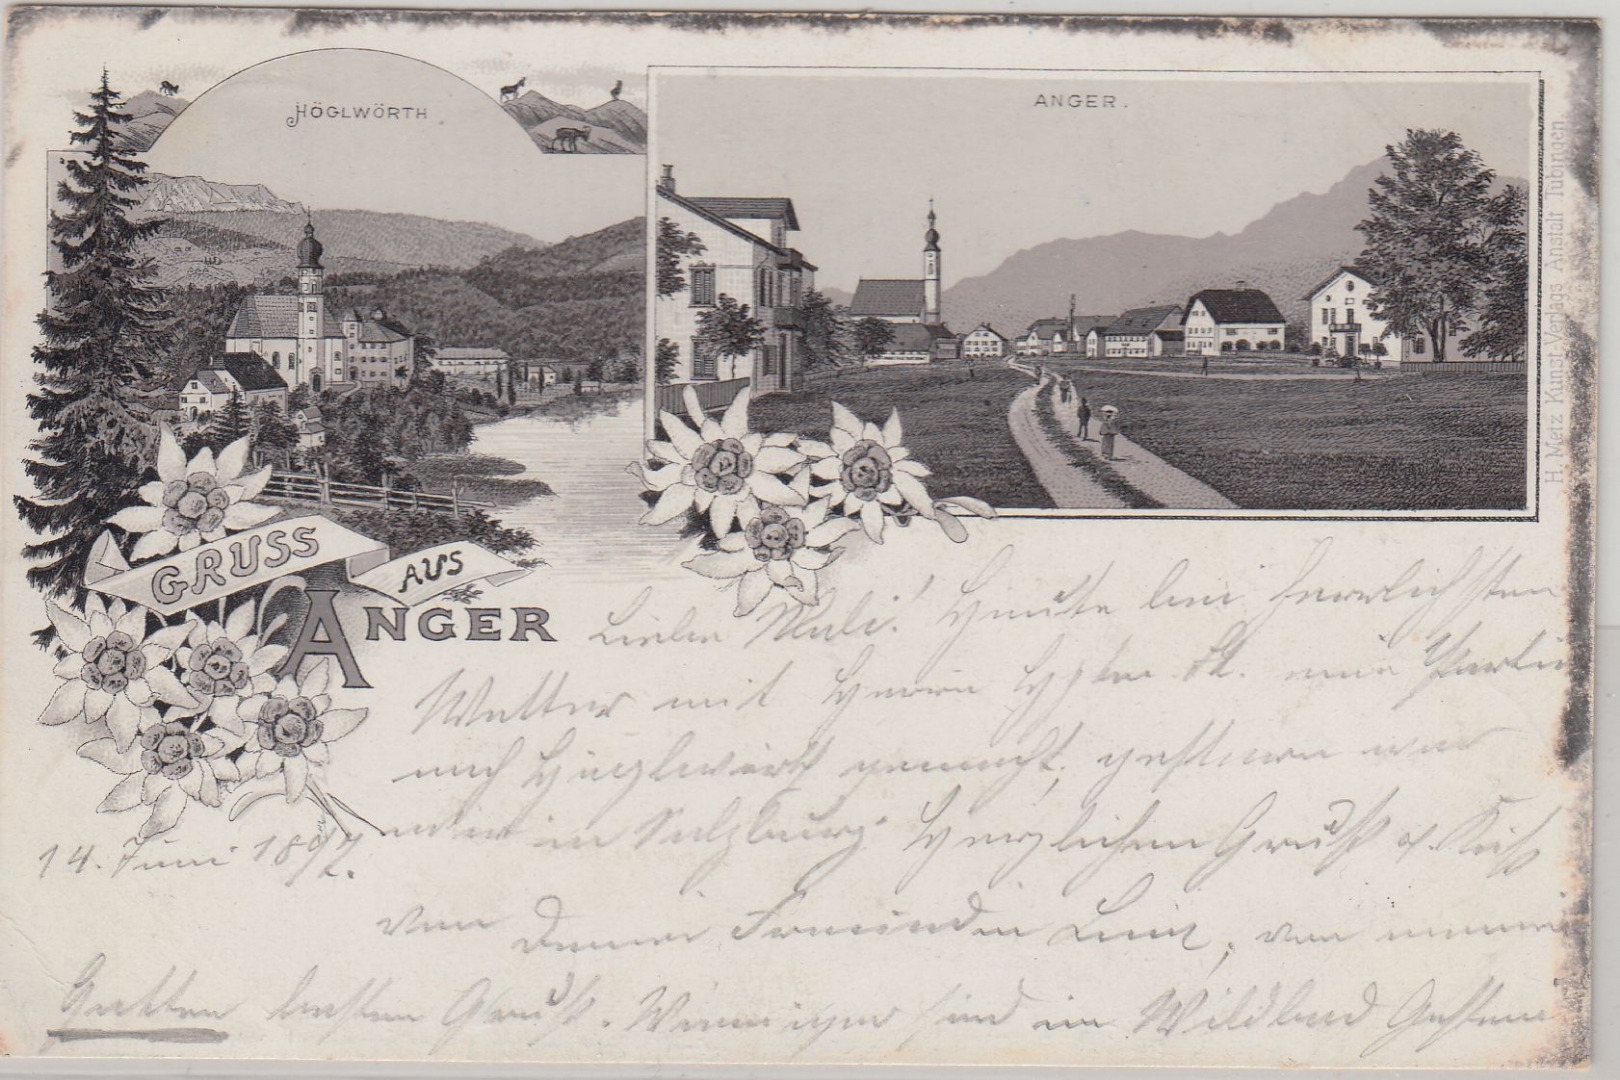 HÖGLWÖRTH.
ANGER.
H. Metz Kunst-Verlags-Anstalt Tübingen.
GRUSS
AUS
ANGER
Liebe Mali! Heute bei herrlichsten
Wetter mit Herrn eine Partie
nach Höglwörth gemacht, gestern war
in Salzburg. Herzlichen Gruß u. Kuß
14. Juni 1897.
von Deiner Freundin von meinem
Gatten besten Gruß. sind in Wildbad